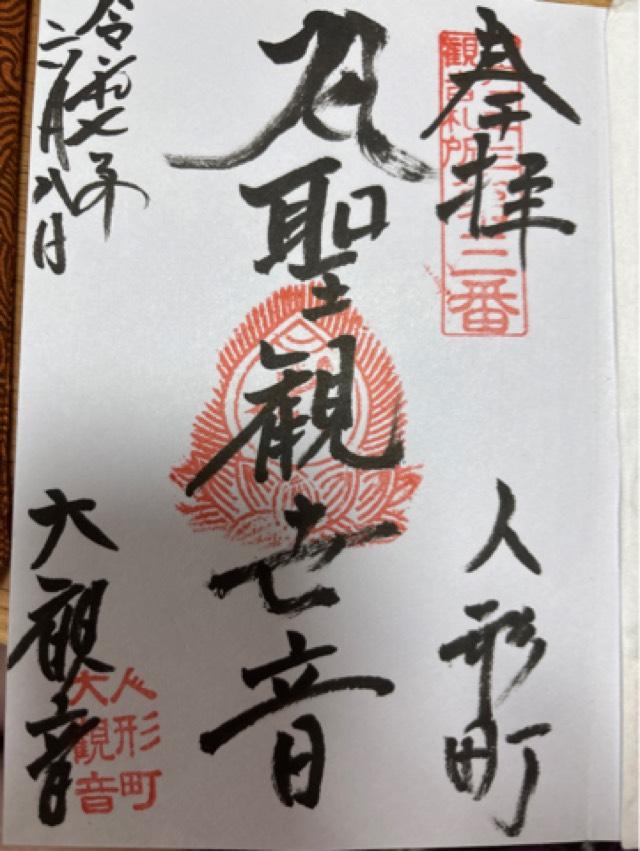 奉拝
観音札所
三番
人形町
聖観世音
令和七年
月八日
大観音
人形町
大観音